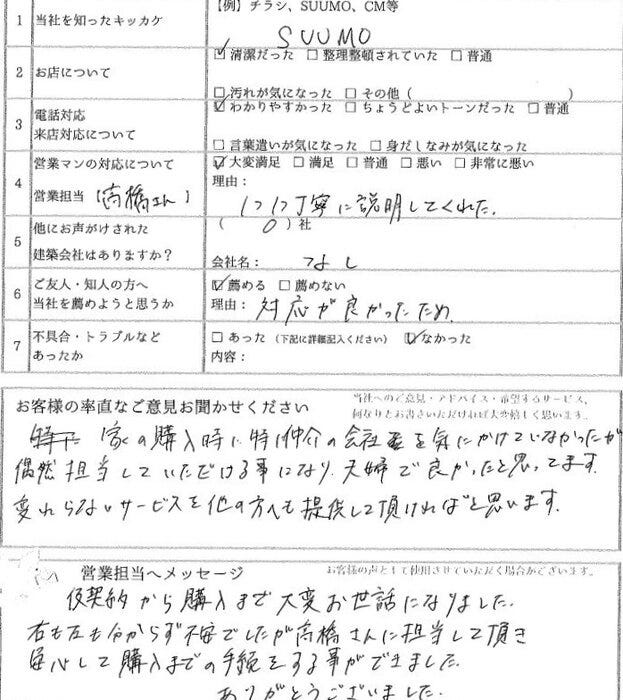 【例】チラシ、SUUMO、CM等
1 当社を知ったキッカケ
SUUMO
2 お店について
☑清潔だった □整理整頓されていた □普通
□汚れが気になった □その他（ ）
3 電話対応
来店対応について
☑わかりやすかった □ちょうどよいトーンだった □普通
□言葉遣いが気になった □身だしなみが気になった
4 営業マンの対応について
営業担当【高橋さん】
☑大変満足 □満足 □普通 □悪い □非常に悪い
理由：
1つ1つ丁寧に説明してくれた.
5 他にお声がけされた
建築会社はありますか？
（ 0 ）社
会社名： なし
6 ご友人・知人の方へ
当社を薦めようと思うか
☑薦める □薦めない
理由： 対応が良かったため.
7 不具合・トラブルなど
あったか
□あった（下記に詳細記入ください） ☑なかった
内容：
お客様の率直なご意見お聞かせください
当社へのご意見・アドバイス・希望するサービス、
何なりとお書きいただければ大変嬉しく思います。
家の購入時に特に仲介の会社を気にかけていなかったが
偶然担当していただける事になり、夫婦で良かったと思ってます.
変わらないサービスを他の方へも提供して頂ければと思います.
営業担当へメッセージ
お客様の声として使用させていただく場合がございます。
仮契約から購入まで大変お世話になりました.
右も左も分からず不安でしたが高橋さんに担当して頂き
安心して購入までの手続をする事ができました.
ありがとうございました.